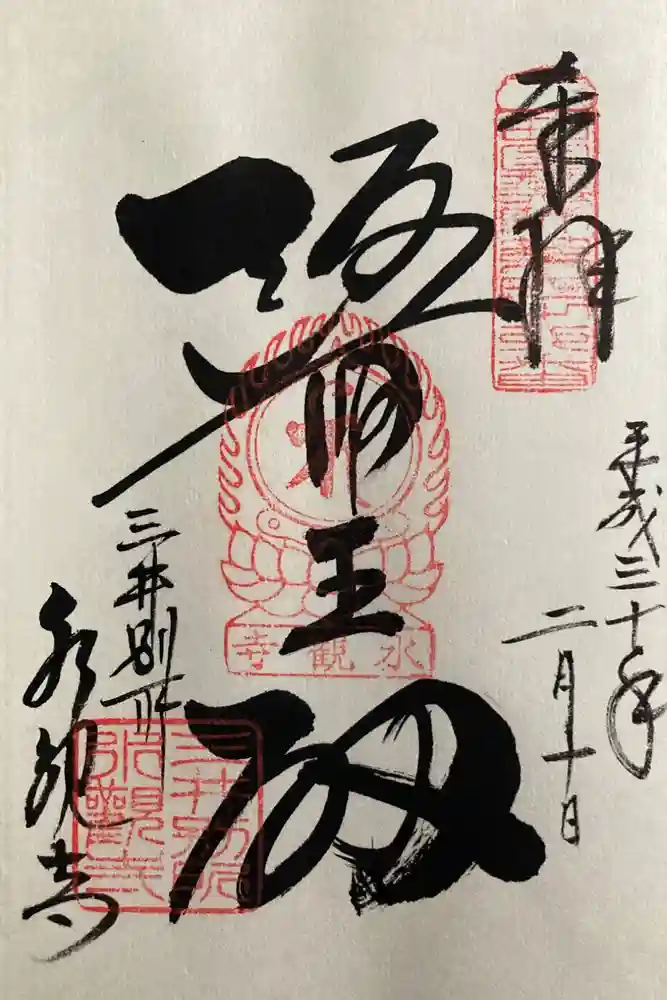 奉拝
平成三十年
二月十日
醫王殿
三井別所
水観寺
水觀寺
三井別所
水観寺